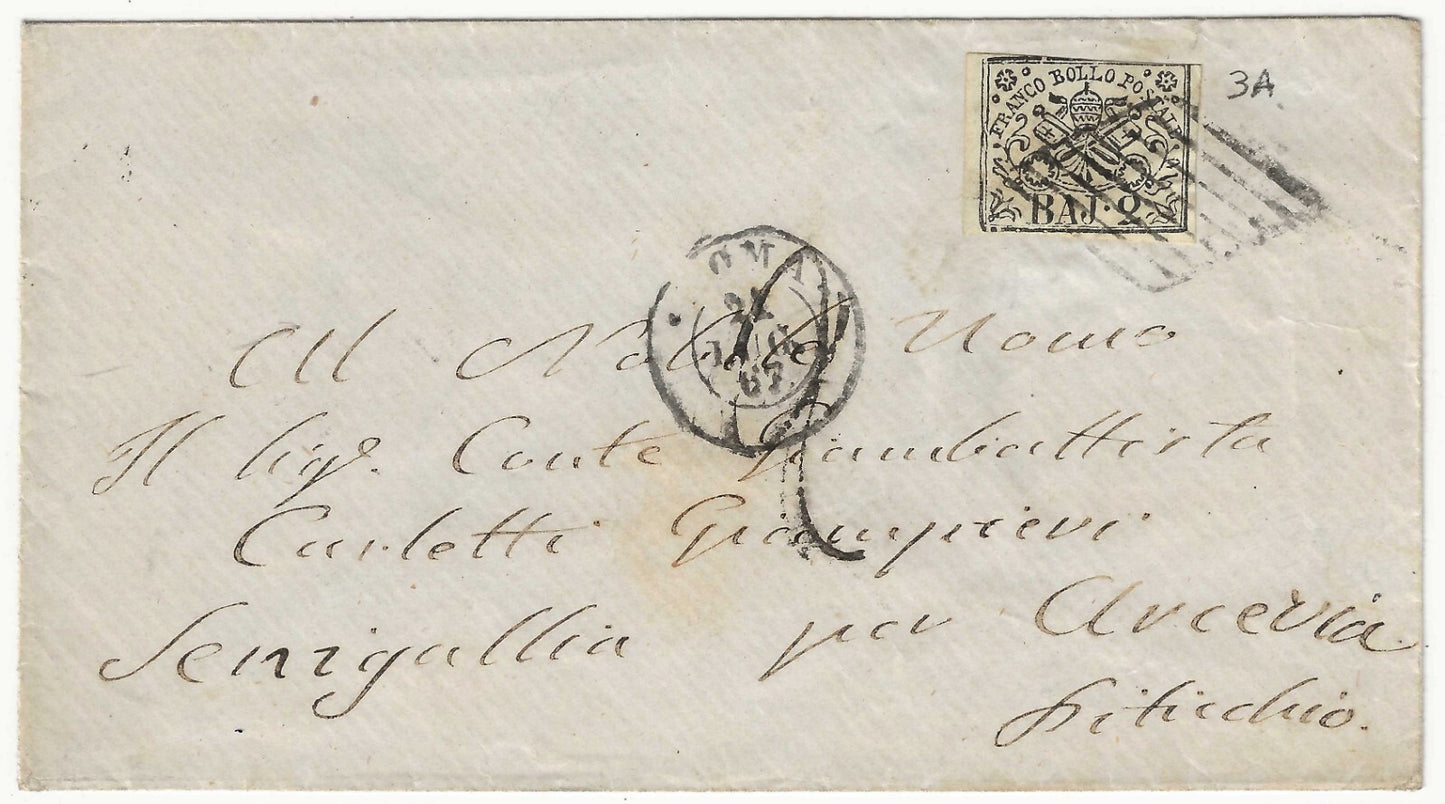 3A
FRANCO BOLLO POSTALE
BAJ. 2
ROMA
67
Al Nobil Uomo
Il Sigr. Conte Giambattista
Carletti Giampieri
Senigallia per Arcevia
Piticchio.